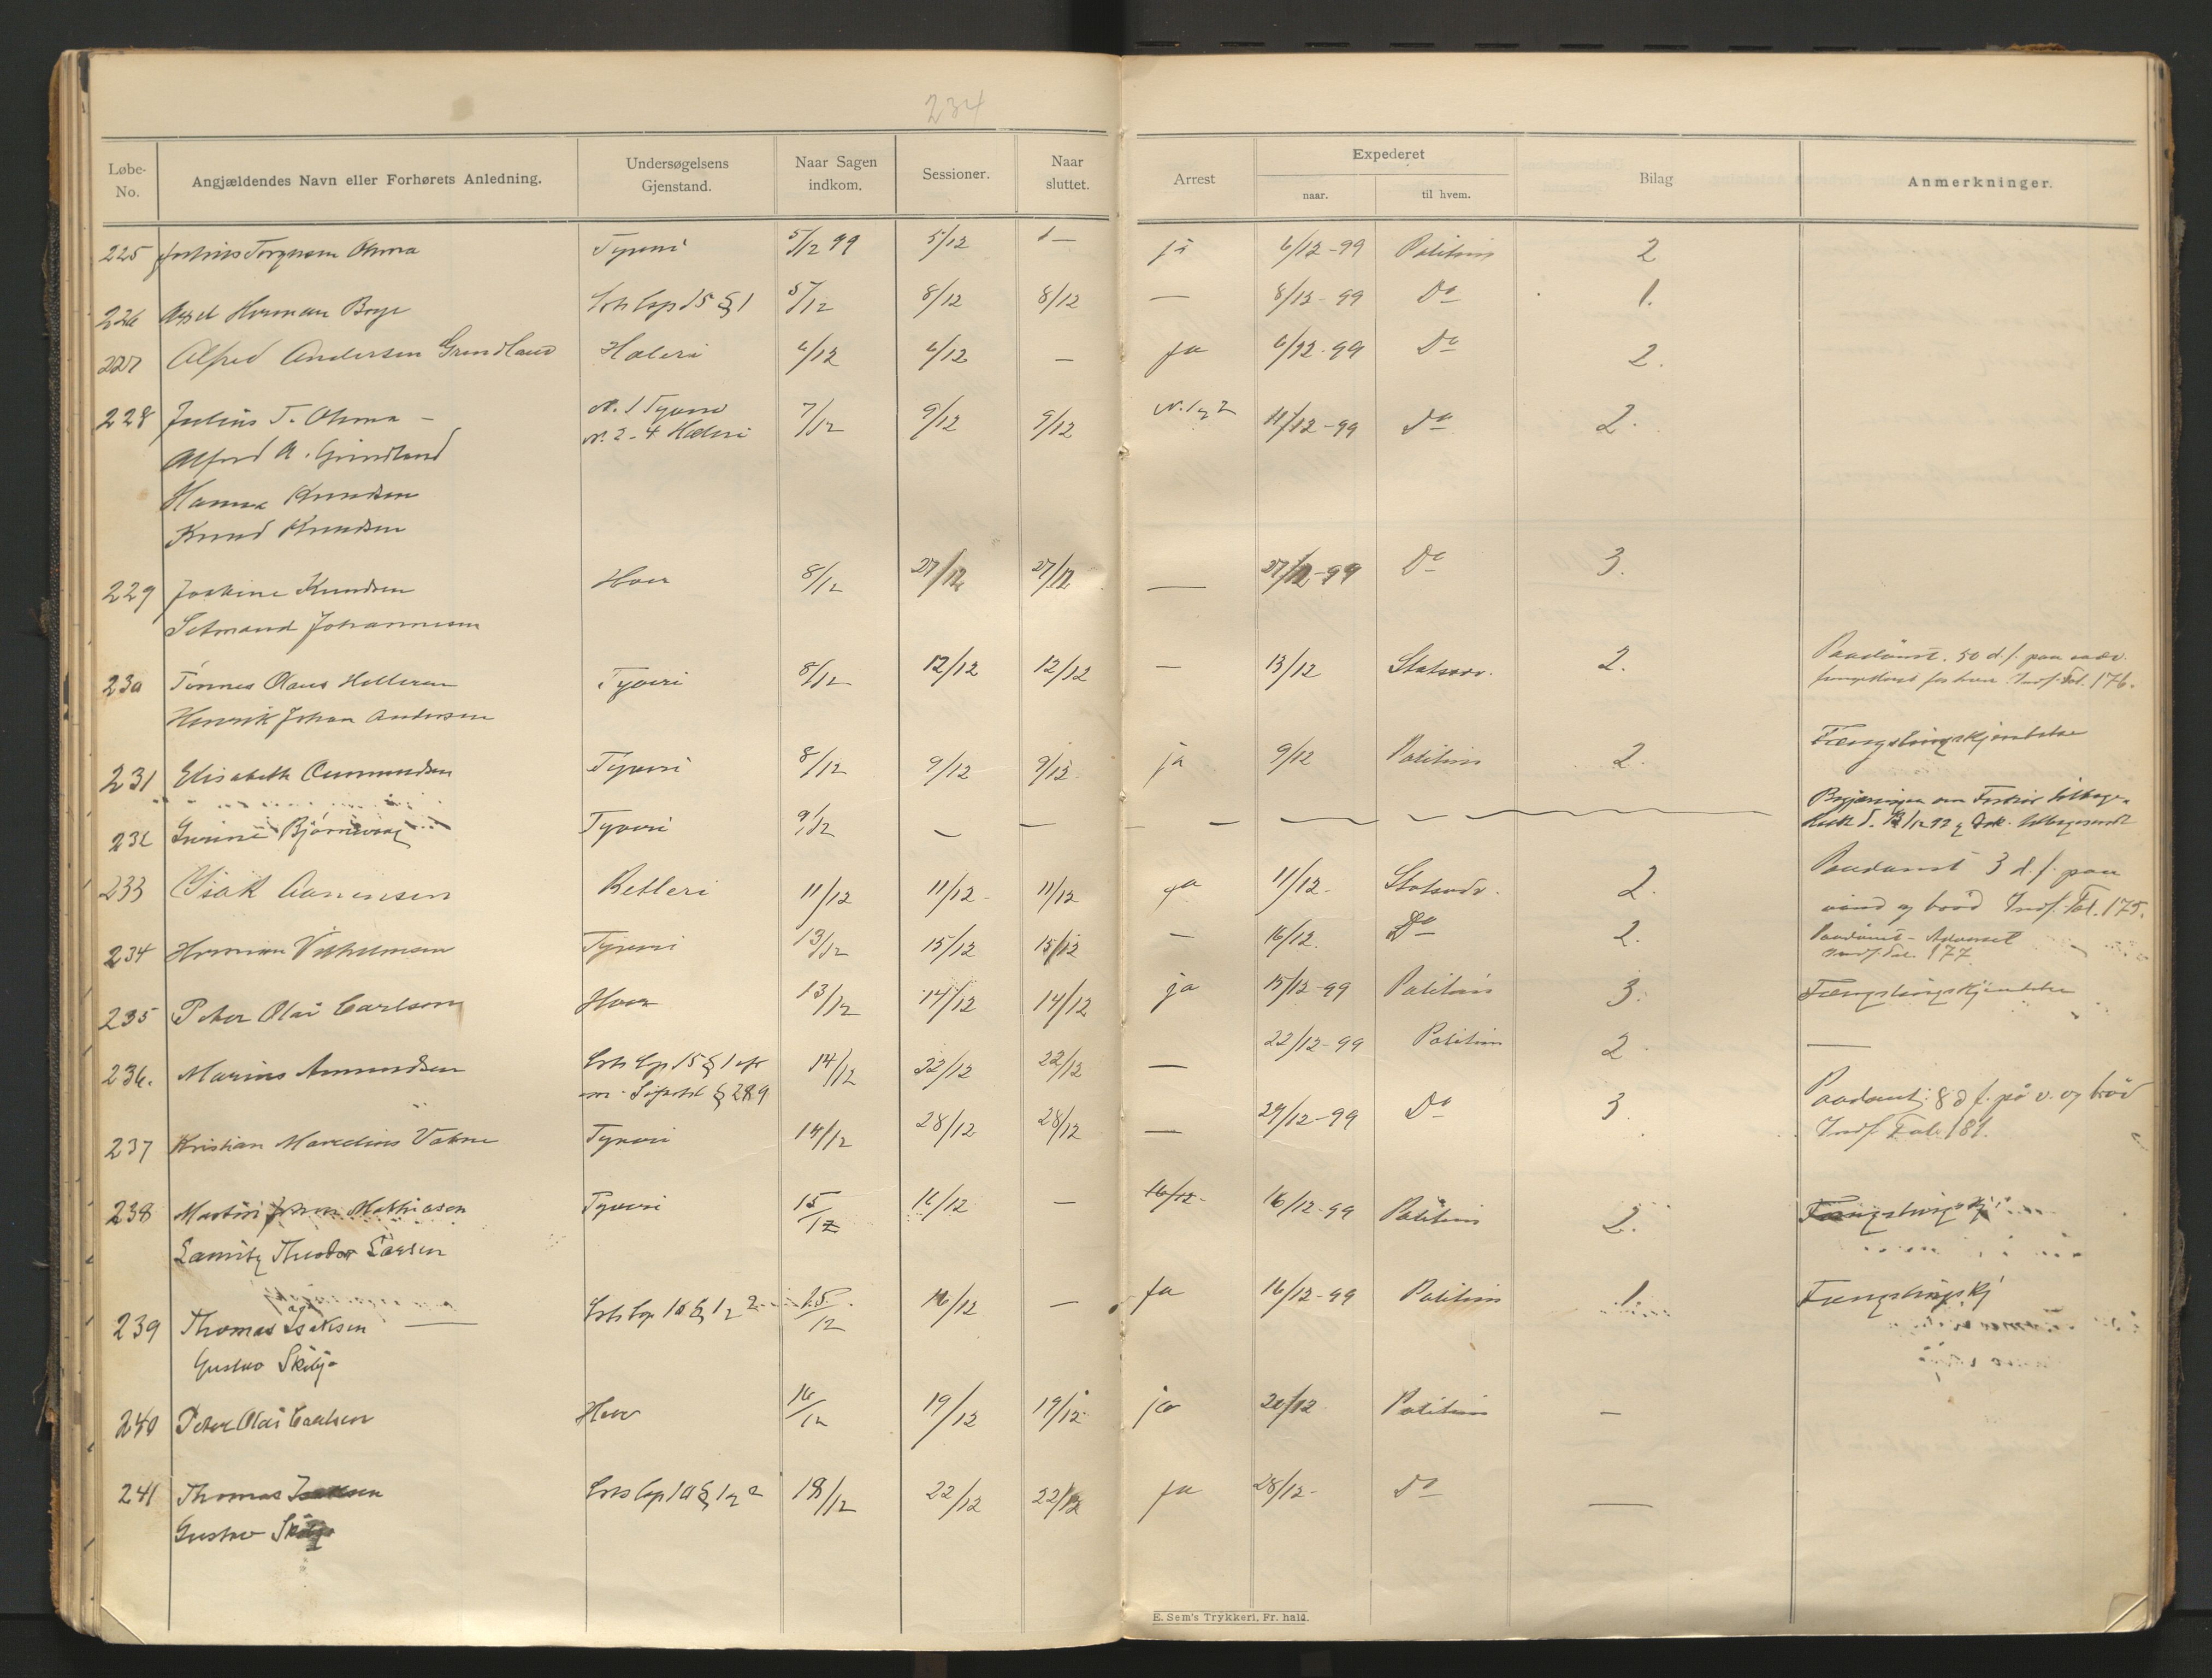 234
Løbe-No. Angjældendes Navn eller Forhørets Anledning. Undersøgelsens Gjenstand. Naar Sagen indkom. Sessioner. Naar sluttet. Arrest Expederet naar. til hvem. Bilag Anmerkninger.
225 Tyveri 5/12 99 5/12 ja 6/12-99 Politiet 2
226 Axel Herman Boye Cap 15 § 1 5/12 8/12 8/12 — 8/12-99 Do 1.
227 Alfred Andersen Grindland Hæleri 6/12 6/12 — ja 6/12-99 Do 2.
228 Julius T. Ohma — N. 1 Tyveri 7/12 9/12 9/12 N. 1 og 2 11/12-99 Do 2.
N. 2-4 Hæleri
Alfred A. Grindland
Hanna Knudsen
Knud Knudsen
229 Knudsen Hoer 8/12 27/12 27/12 — 27/12-99 Do 3.
Johannesen
230 Tønnes Olaus Tyveri 8/12 12/12 12/12 — 13/12 Statsadv. 2. Paadømt. 30 d. f. paa
Indf. Fol. 176.
Henrik Johan Andersen
231 Elisabeth Tyveri 8/12 9/12 9/12 ja 9/12 Politiet 2. Fængslingskjendelse
232 Tyveri 9/12 — — — Begjæringen om Forhør tilbage-
233 Isak Betleri 11/12 11/12 11/12 ja 11/12 Statsadv. 2. Paadømt 3 d. f. paa
vand og brød Indf. Fol. 175.
234 Herman Vilhelmsen Tyveri 13/12 15/12 15/12 — 16/12 Do 2. Paadømt —
Indf. Fol. 177
235 Peter Olai Carlsen Hoer 13/12 14/12 14/12 ja 15/12-99 Politiet 3. Fængslingskjendelse
236. Marius Amundsen Cap 15 § 1 14/12 22/12 22/12 — 22/12-99 Politiet 2 —
§ 289
237 Kristian Marelius Tyveri 14/12 28/12 28/12 — 29/12-99 Do 3. Paadømt: 8 d f. på v. og brød
Indf. Fol. 181.
238 Martin Johan Mathiasen Tyveri 15/12 16/12 — 16/12- 16/12-99 Politiet 2. Fængslingskj
Theodor Larsen
239 Thomas Isaksen — Cap 10 § 1 og 2 15/12 16/12 — ja 16/12-99 Politiet 1 Fængslingskj
Gustav
240 Peter Olai Carlsen Hoer 16/12 19/12 19/12 ja 20/12 Politiet —
241 Thomas Isaksen Cap 10 § 1 og 2 18/12 22/12 22/12 ja 28/12- Do —
Gustav
E. Sem's Trykkeri, Fr. hald.